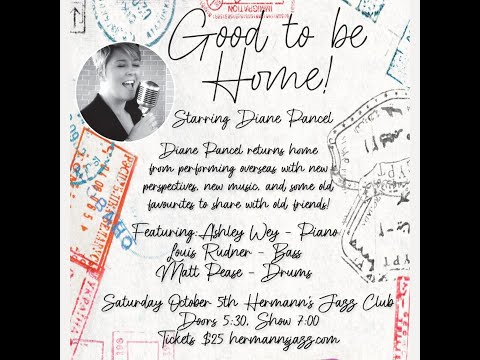 Good to be
Home!
Starring Diane Pancel
Diane Pancel returns home
from performing overseas with new
perspectives, new music, and some old
favourites to share with old friends!
Featuring: Ashley Wey - Piano
Louis Rudner - Bass
Matt Pease - Drums
Saturday October 5th Hermann's Jazz Club
Doors 5:30, Show 7:00
Tickets $25 hermannsjazz.com
IMMIGRATION